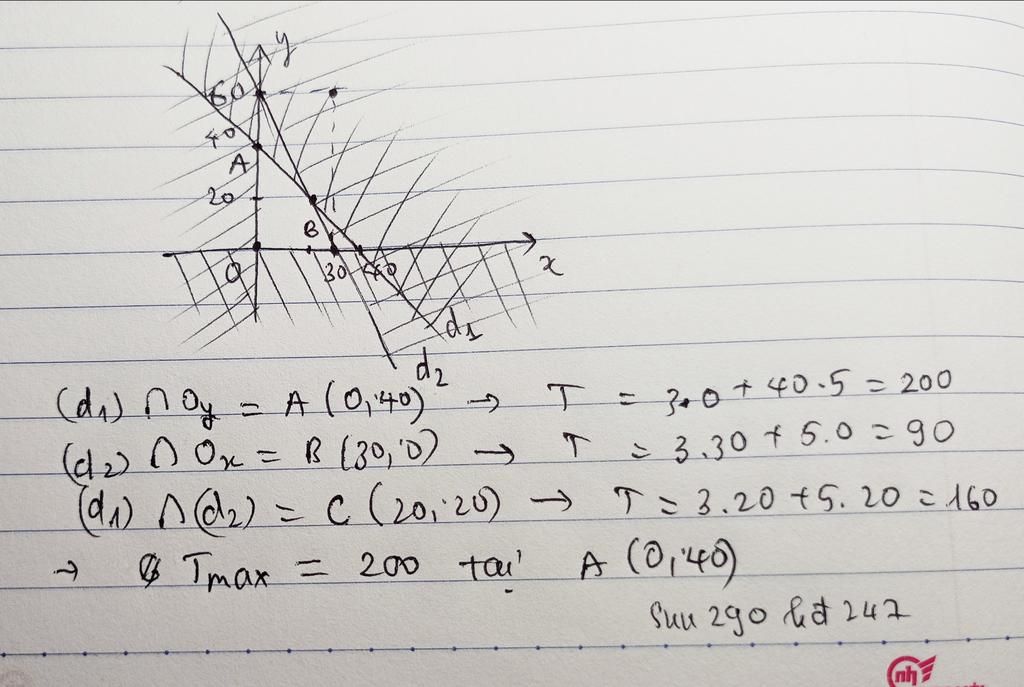 y
60
40
A
20
B
O
30 40
x
d1
d2
(d1) ∩ Oy = A (0;40) → T = 3.0 + 40.5 = 200
(d2) ∩ Ox = B (30;0) → T = 3.30 + 5.0 = 90
(d1) ∩ (d2) = C (20;20) → T = 3.20 + 5.20 = 160
→ Tmax = 200 tại A (0;40)
290 247
nh